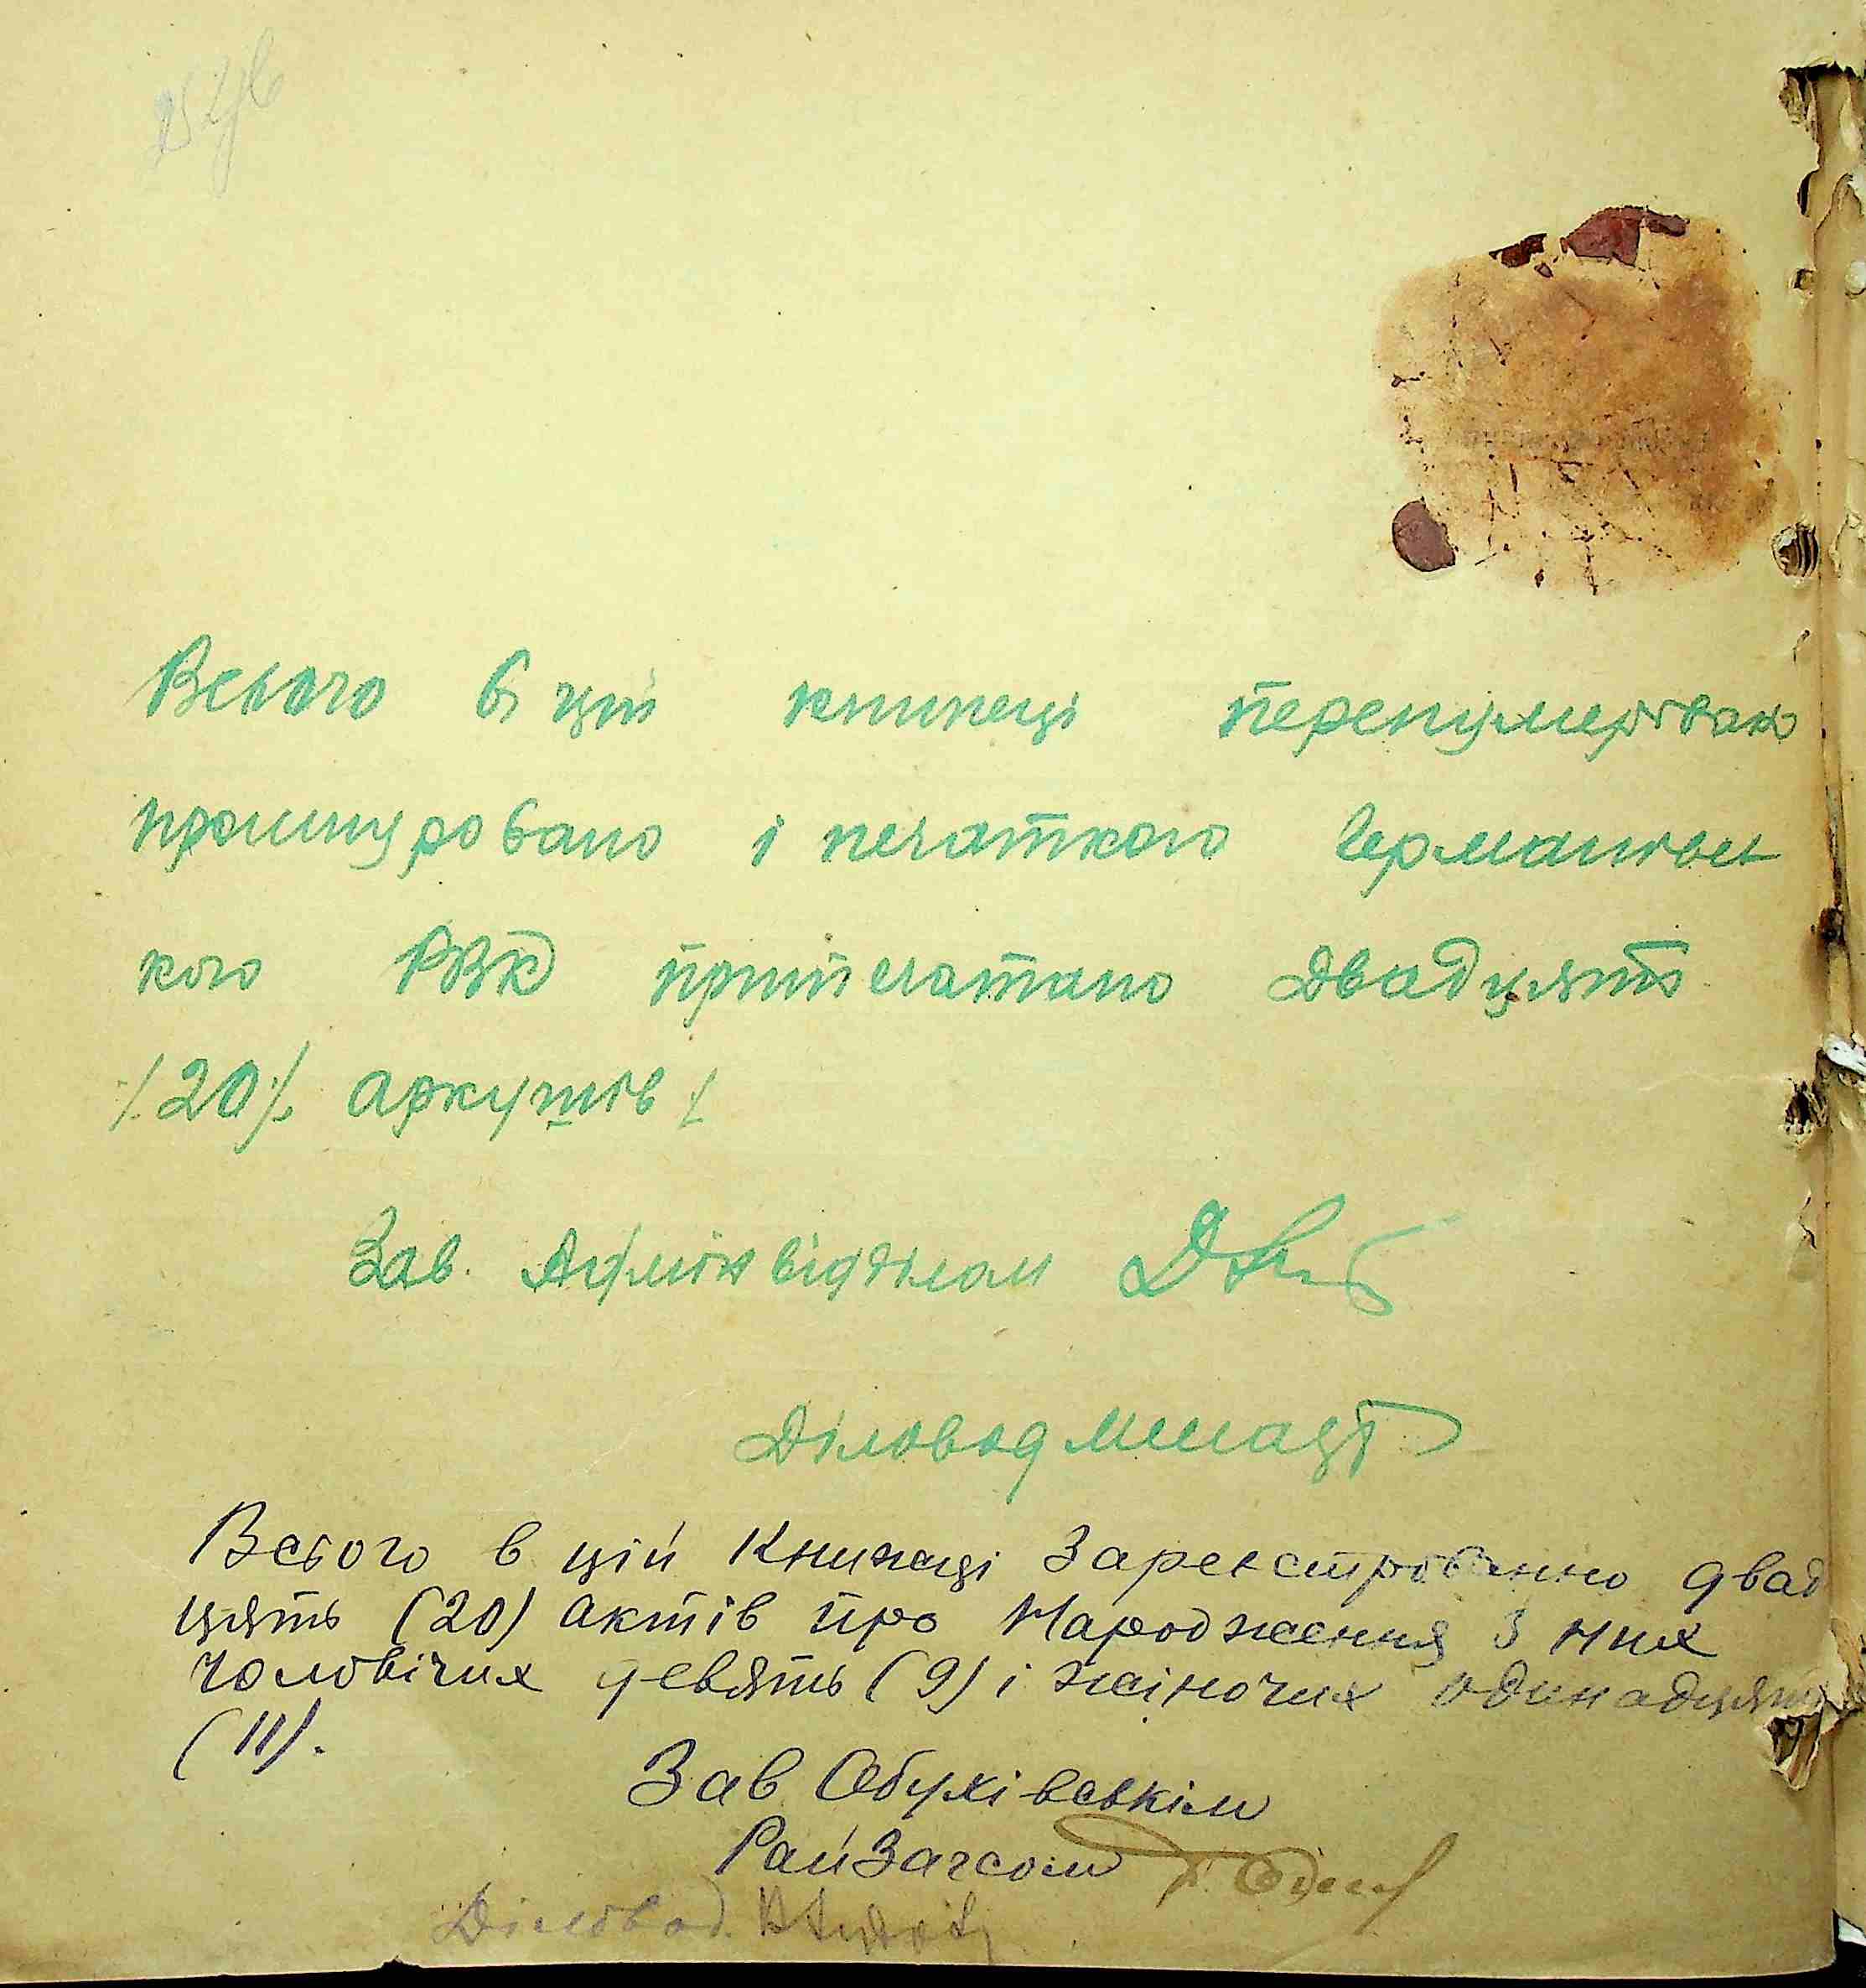 Всього в цій книжеці перенумеровано
прошнуровано і печаткою Германівсь
кого РВК припечатано двадцять
/.20/. аркушів /.
Зав. Адмінвідділом
Діловод
Всього в цій Книжеці Зареєстрованно двад
цять (20) актів про Народження З них
чоловічих девять (9) і жіночих одинадцять
(11).
Зав Обухівськім
РайЗагсом
Діловод.